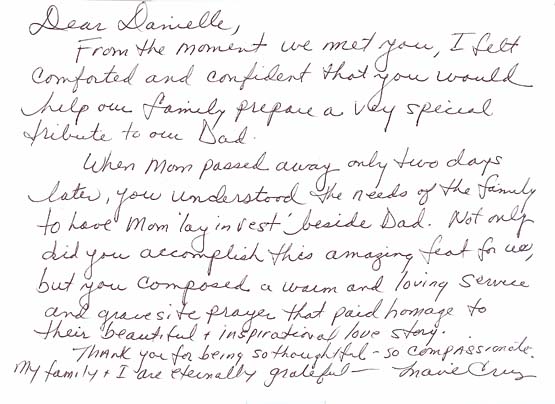 Dear Danielle,
From the moment we met you, I felt
comforted and confident that you would
help our family prepare a very special
tribute to our Dad.
When Mom passed away only two days
later, you understood the needs of the family
to have Mom 'lay in rest' beside Dad. Not only
did you accomplish this amazing feat for us,
but you composed a warm and loving service
and gravesite prayer that paid homage to
their beautiful + inspirational love story.
Thank you for being so thoughtful - so compassionate.
My family + I are eternally grateful - Marie Cruz